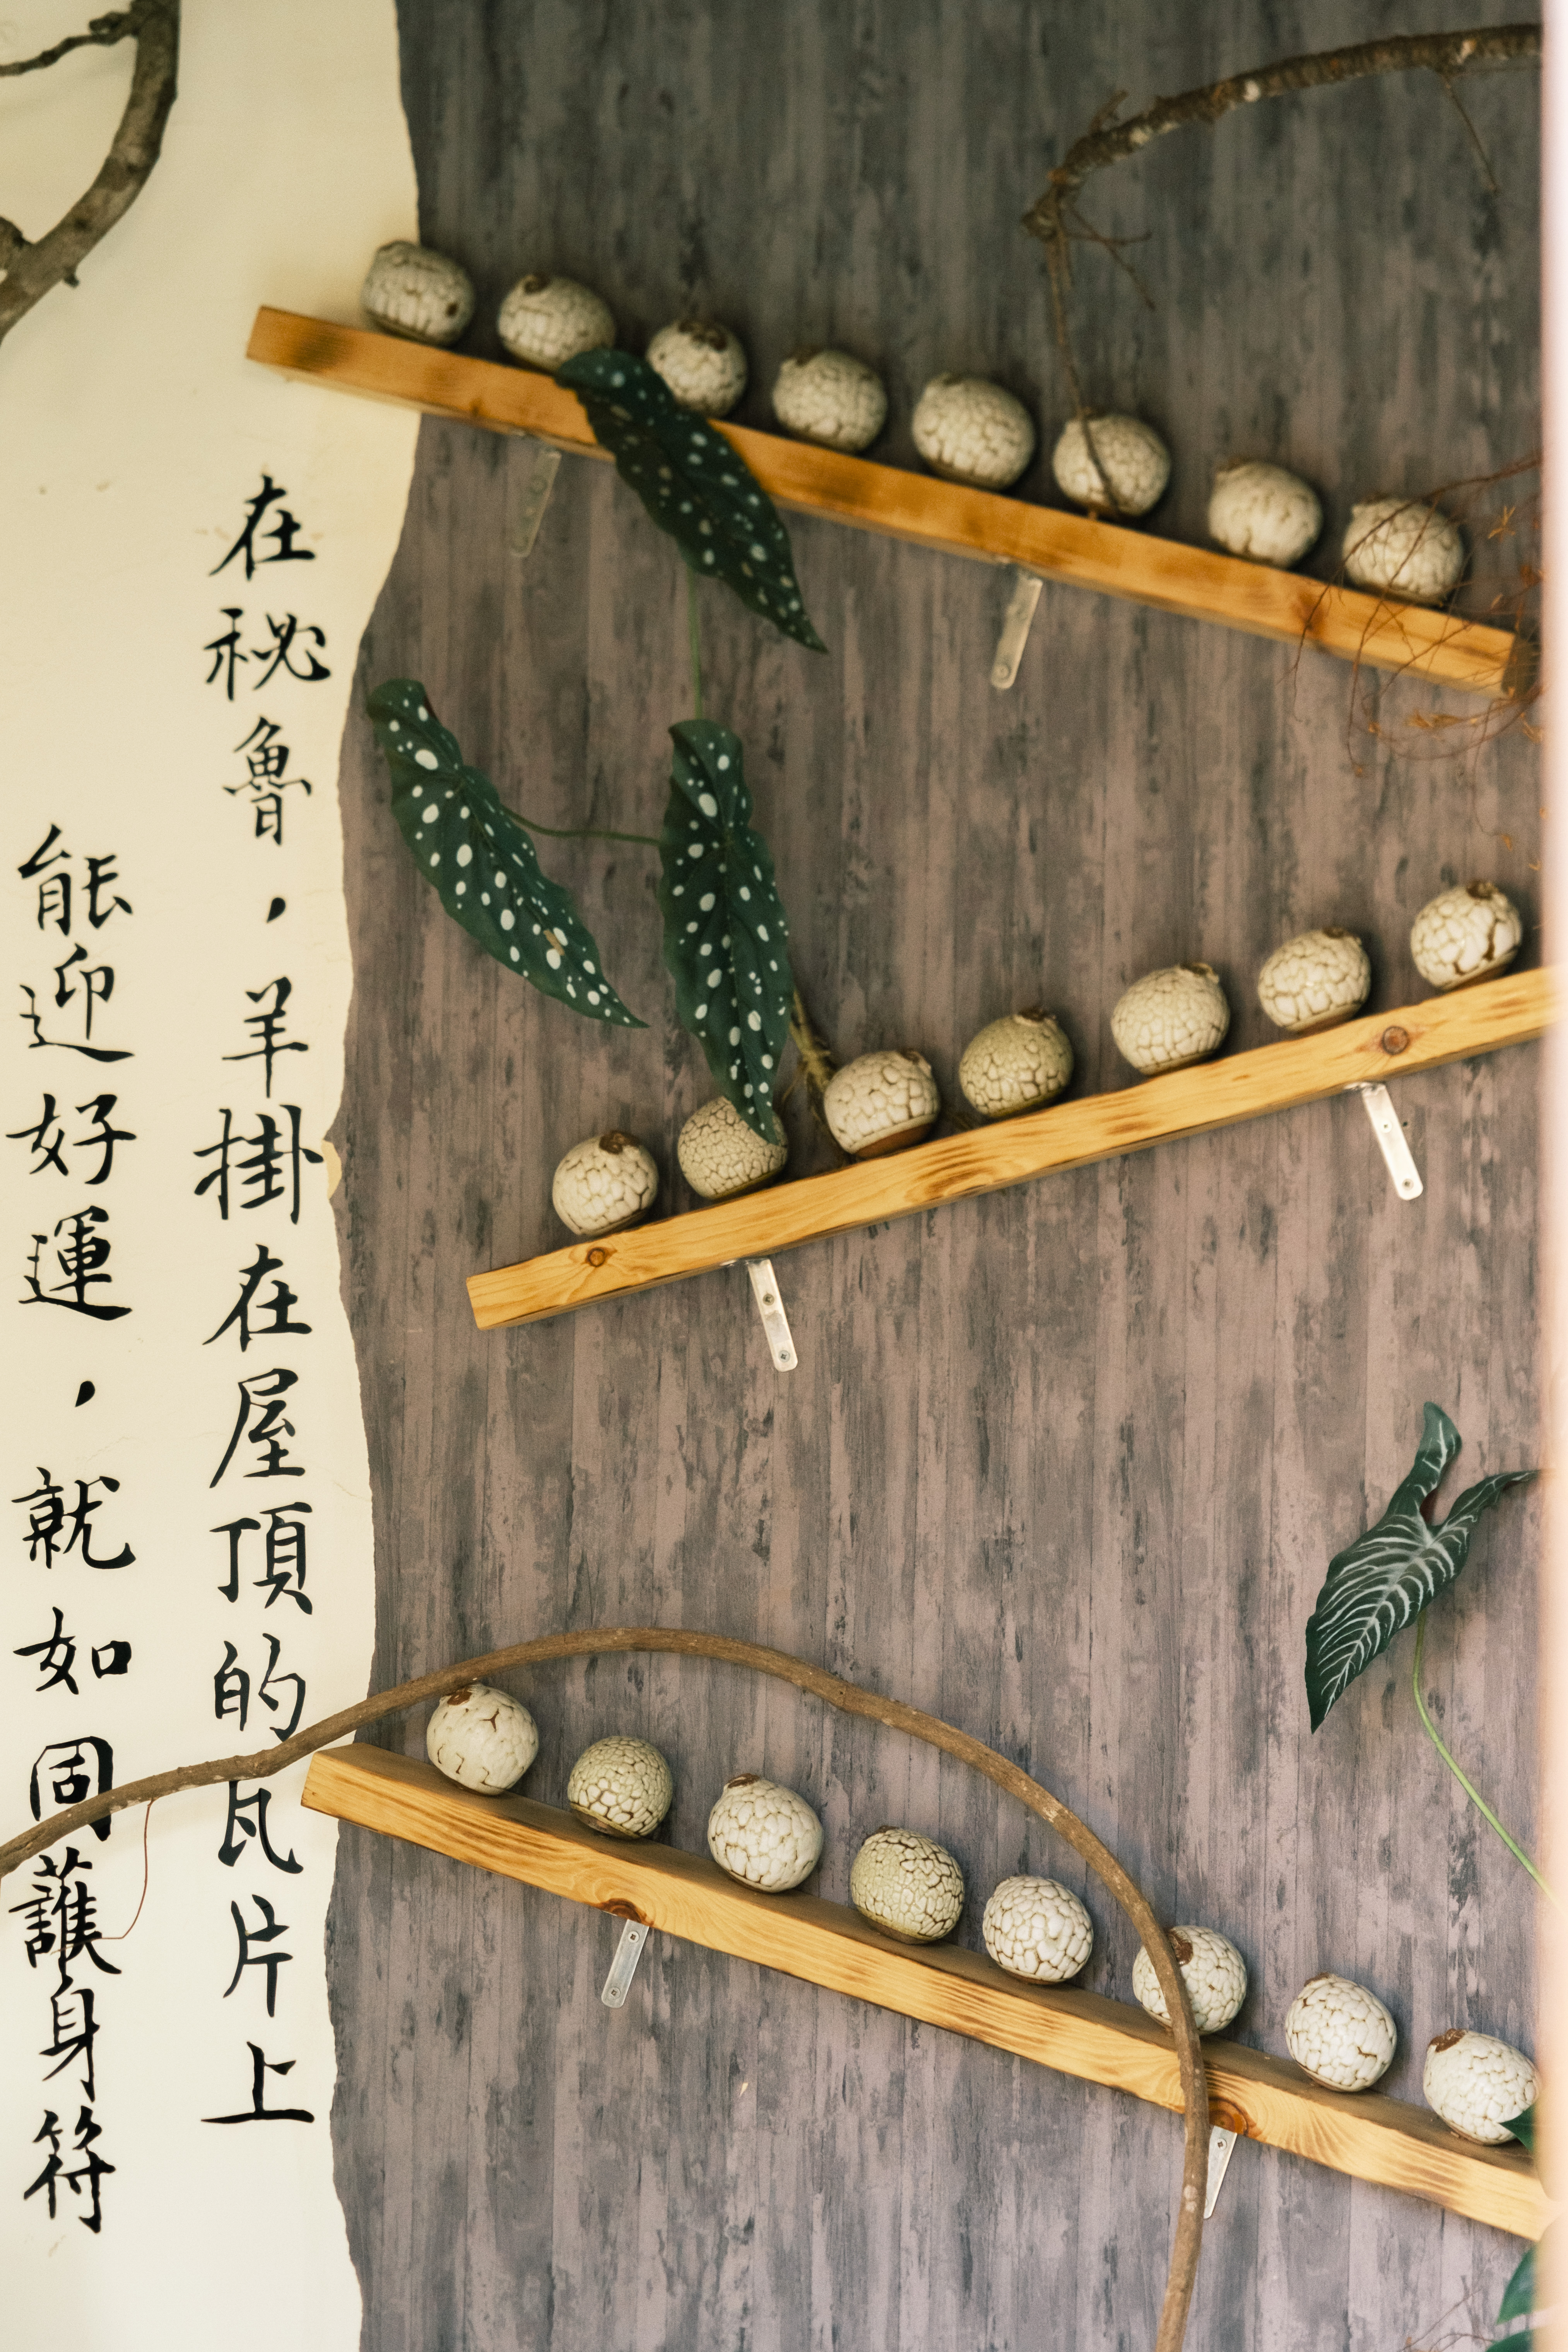 在秘魯，羊掛在屋頂的瓦片上
能迎好運，就如同護身符